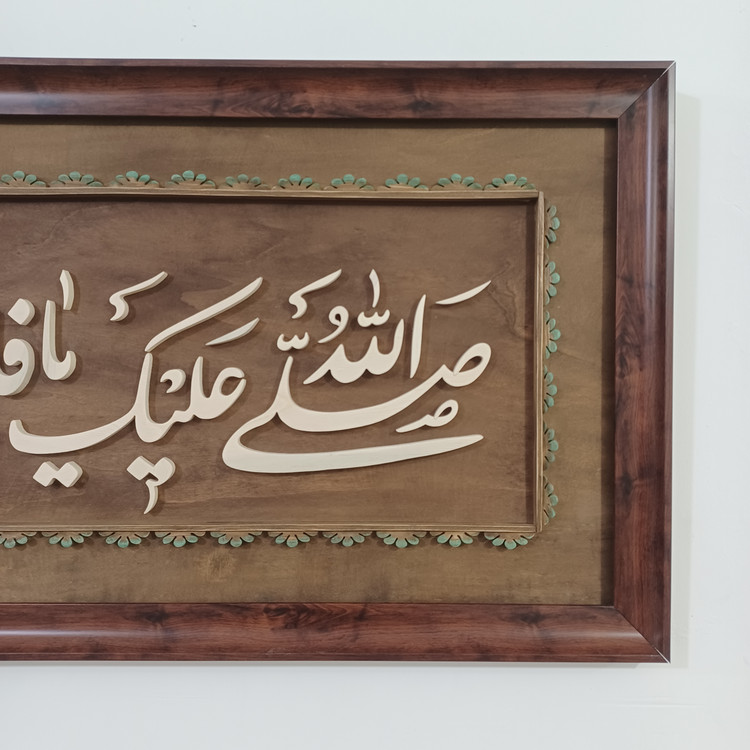 صَلَّی اللهُ عَلَیْكِ یٰا